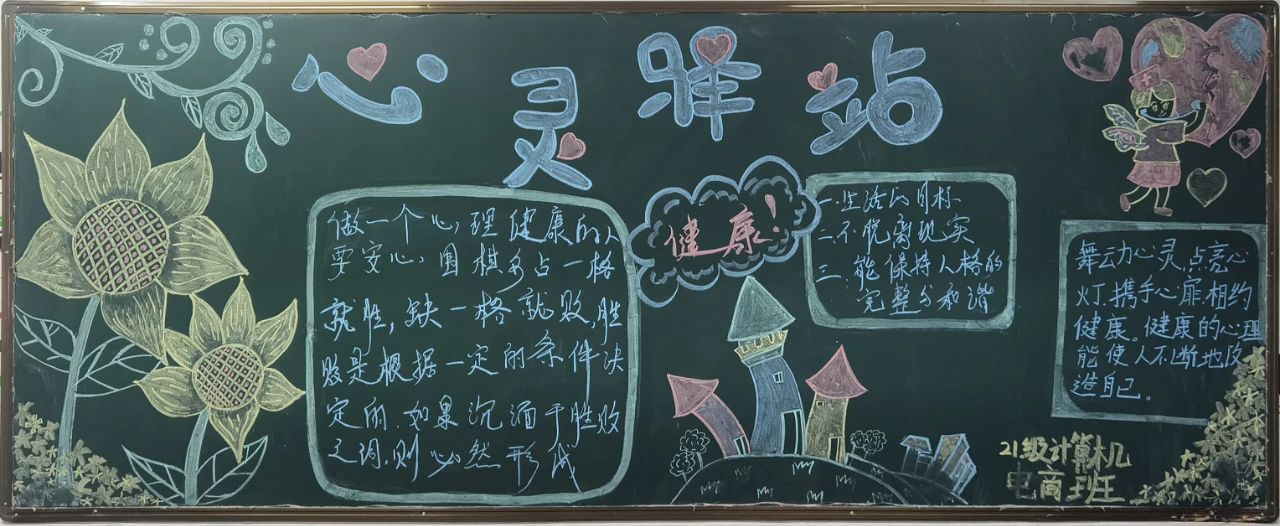 心灵驿站
做一个心理健康的人
要安心，围棋多占一格
就胜，缺一格就败，胜
败是根据一定的条件决
定的.如果沉湎于胜败
之词,则必然形成
健康!
一.生活的目标
二.不脱离现实
三.能保持人格的
完整与和谐
舞动心灵.点亮心
灯.携手心扉.相约
健康。健康的心理
能使人不断地改
造自己。
21级计算机
电商班